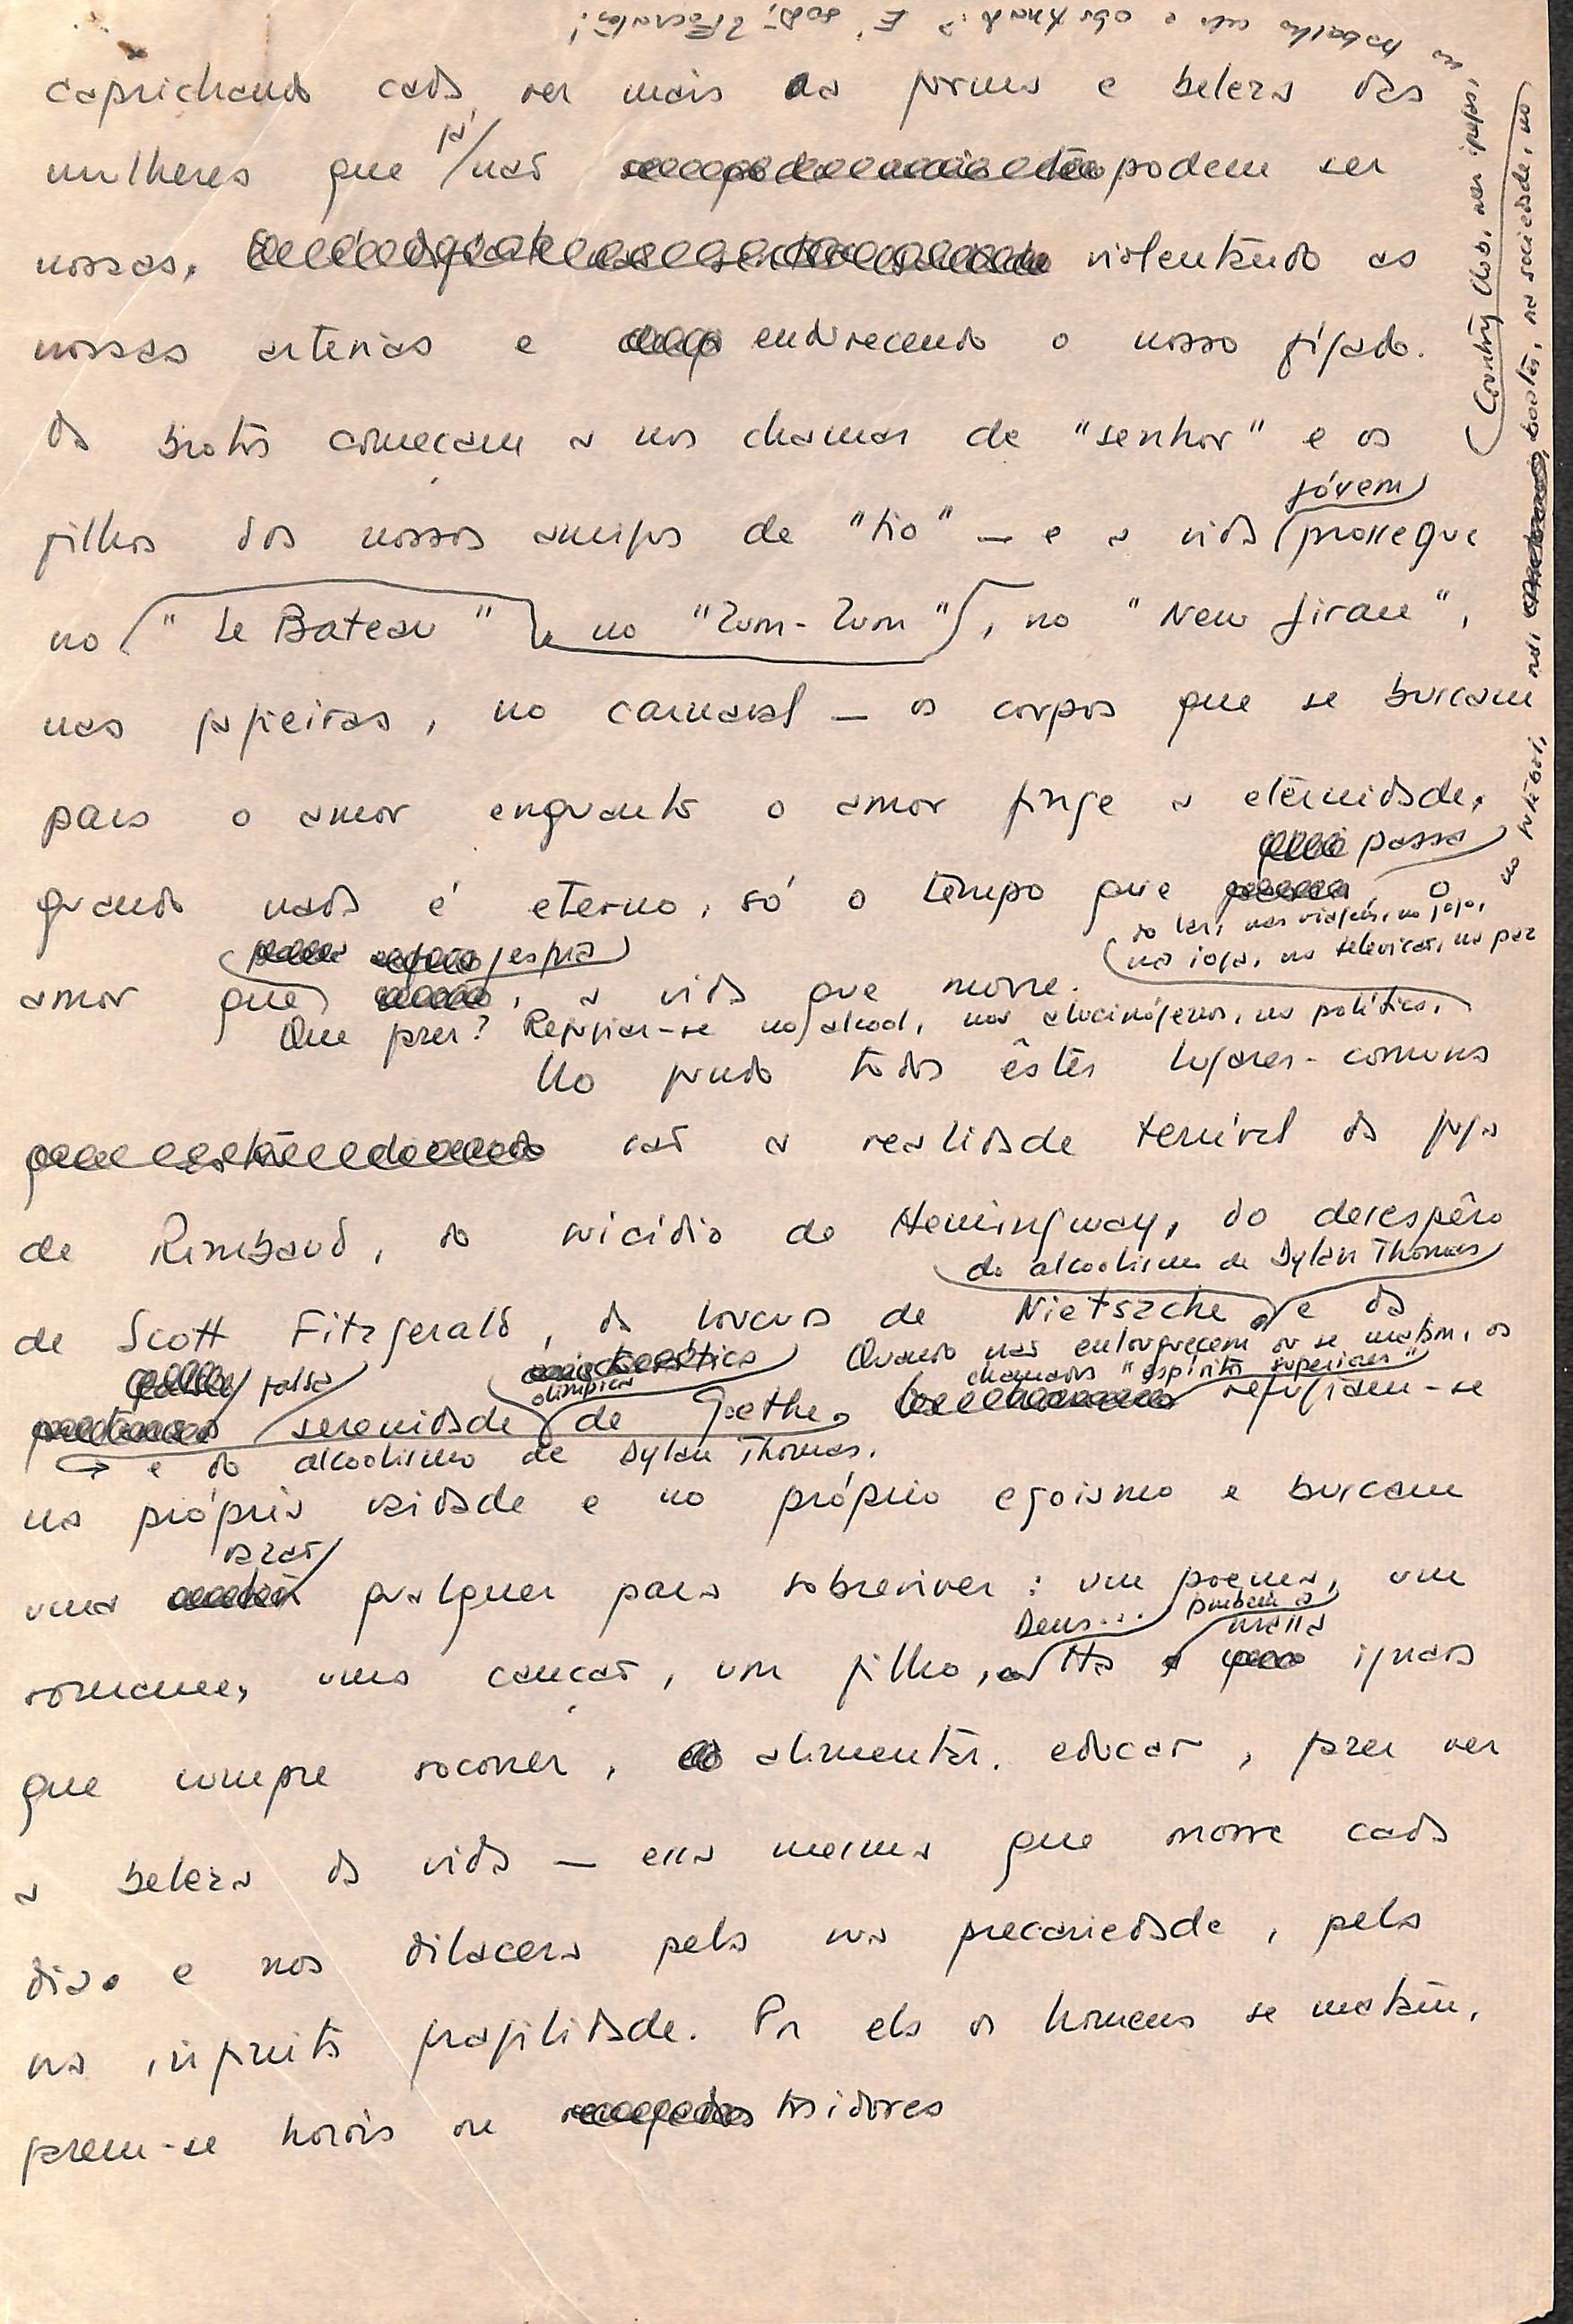 caprichando cada vez mais na forma e beleza das
mulheres que já não podem ser
nossas, violentando as
nossas artérias e endurecendo o nosso fígado.
Os brotos começam a nos chamar de "senhor" e os
filhos dos nossos amigos de "tio" — e a vida jóvem prossegue
no "Le Bateau", no "Zum-Zum", no "New Jirau",
nas gafieiras, no carnaval — os corpos que se buscam
para o amor enquanto o amor finge a eternidade,
quando nada é eterno, só o tempo que passa, o
amor que, a vida que morre.
Que fazer? Refugiar-se no alcool, nos alucinógenos, na política,
do lar, nas viagens, no jogo,
na ioga, na televisão, na paz
no futebol, nas boates, na sociedade, no
Country Club, nas igrejas,
no trabalho
No fundo todos êstes lugares-comuns
são a realidade terrível da fuga
de Rimbaud, do suicídio de Hemingway, do desespêro
do alcoolismo de Dylan Thomas
de Scott Fitzgerald, da loucura de Nietszche e da
falsa serenidade olímpica de Goethe.
e do alcoolismo de Dylan Thomas.
Quando não enlouquecem ou se matam, os
chamados "espíritos superiores" refugiam-se
na própria vaidade e no próprio egoismo e buscam
uma razão qualquer para sobreviver: um poema, um
romance, uma canção, um filho, Deus... Há também a massa ignara
que cumpre socorrer, alimentar, educar, fazer ver
a beleza da vida — essa mesma que morre cada
dia e nos dilacera pela sua precariedade, pela
sua infinita fragilidade. Por ela os homens se matam,
fazem-se heróis ou traidores